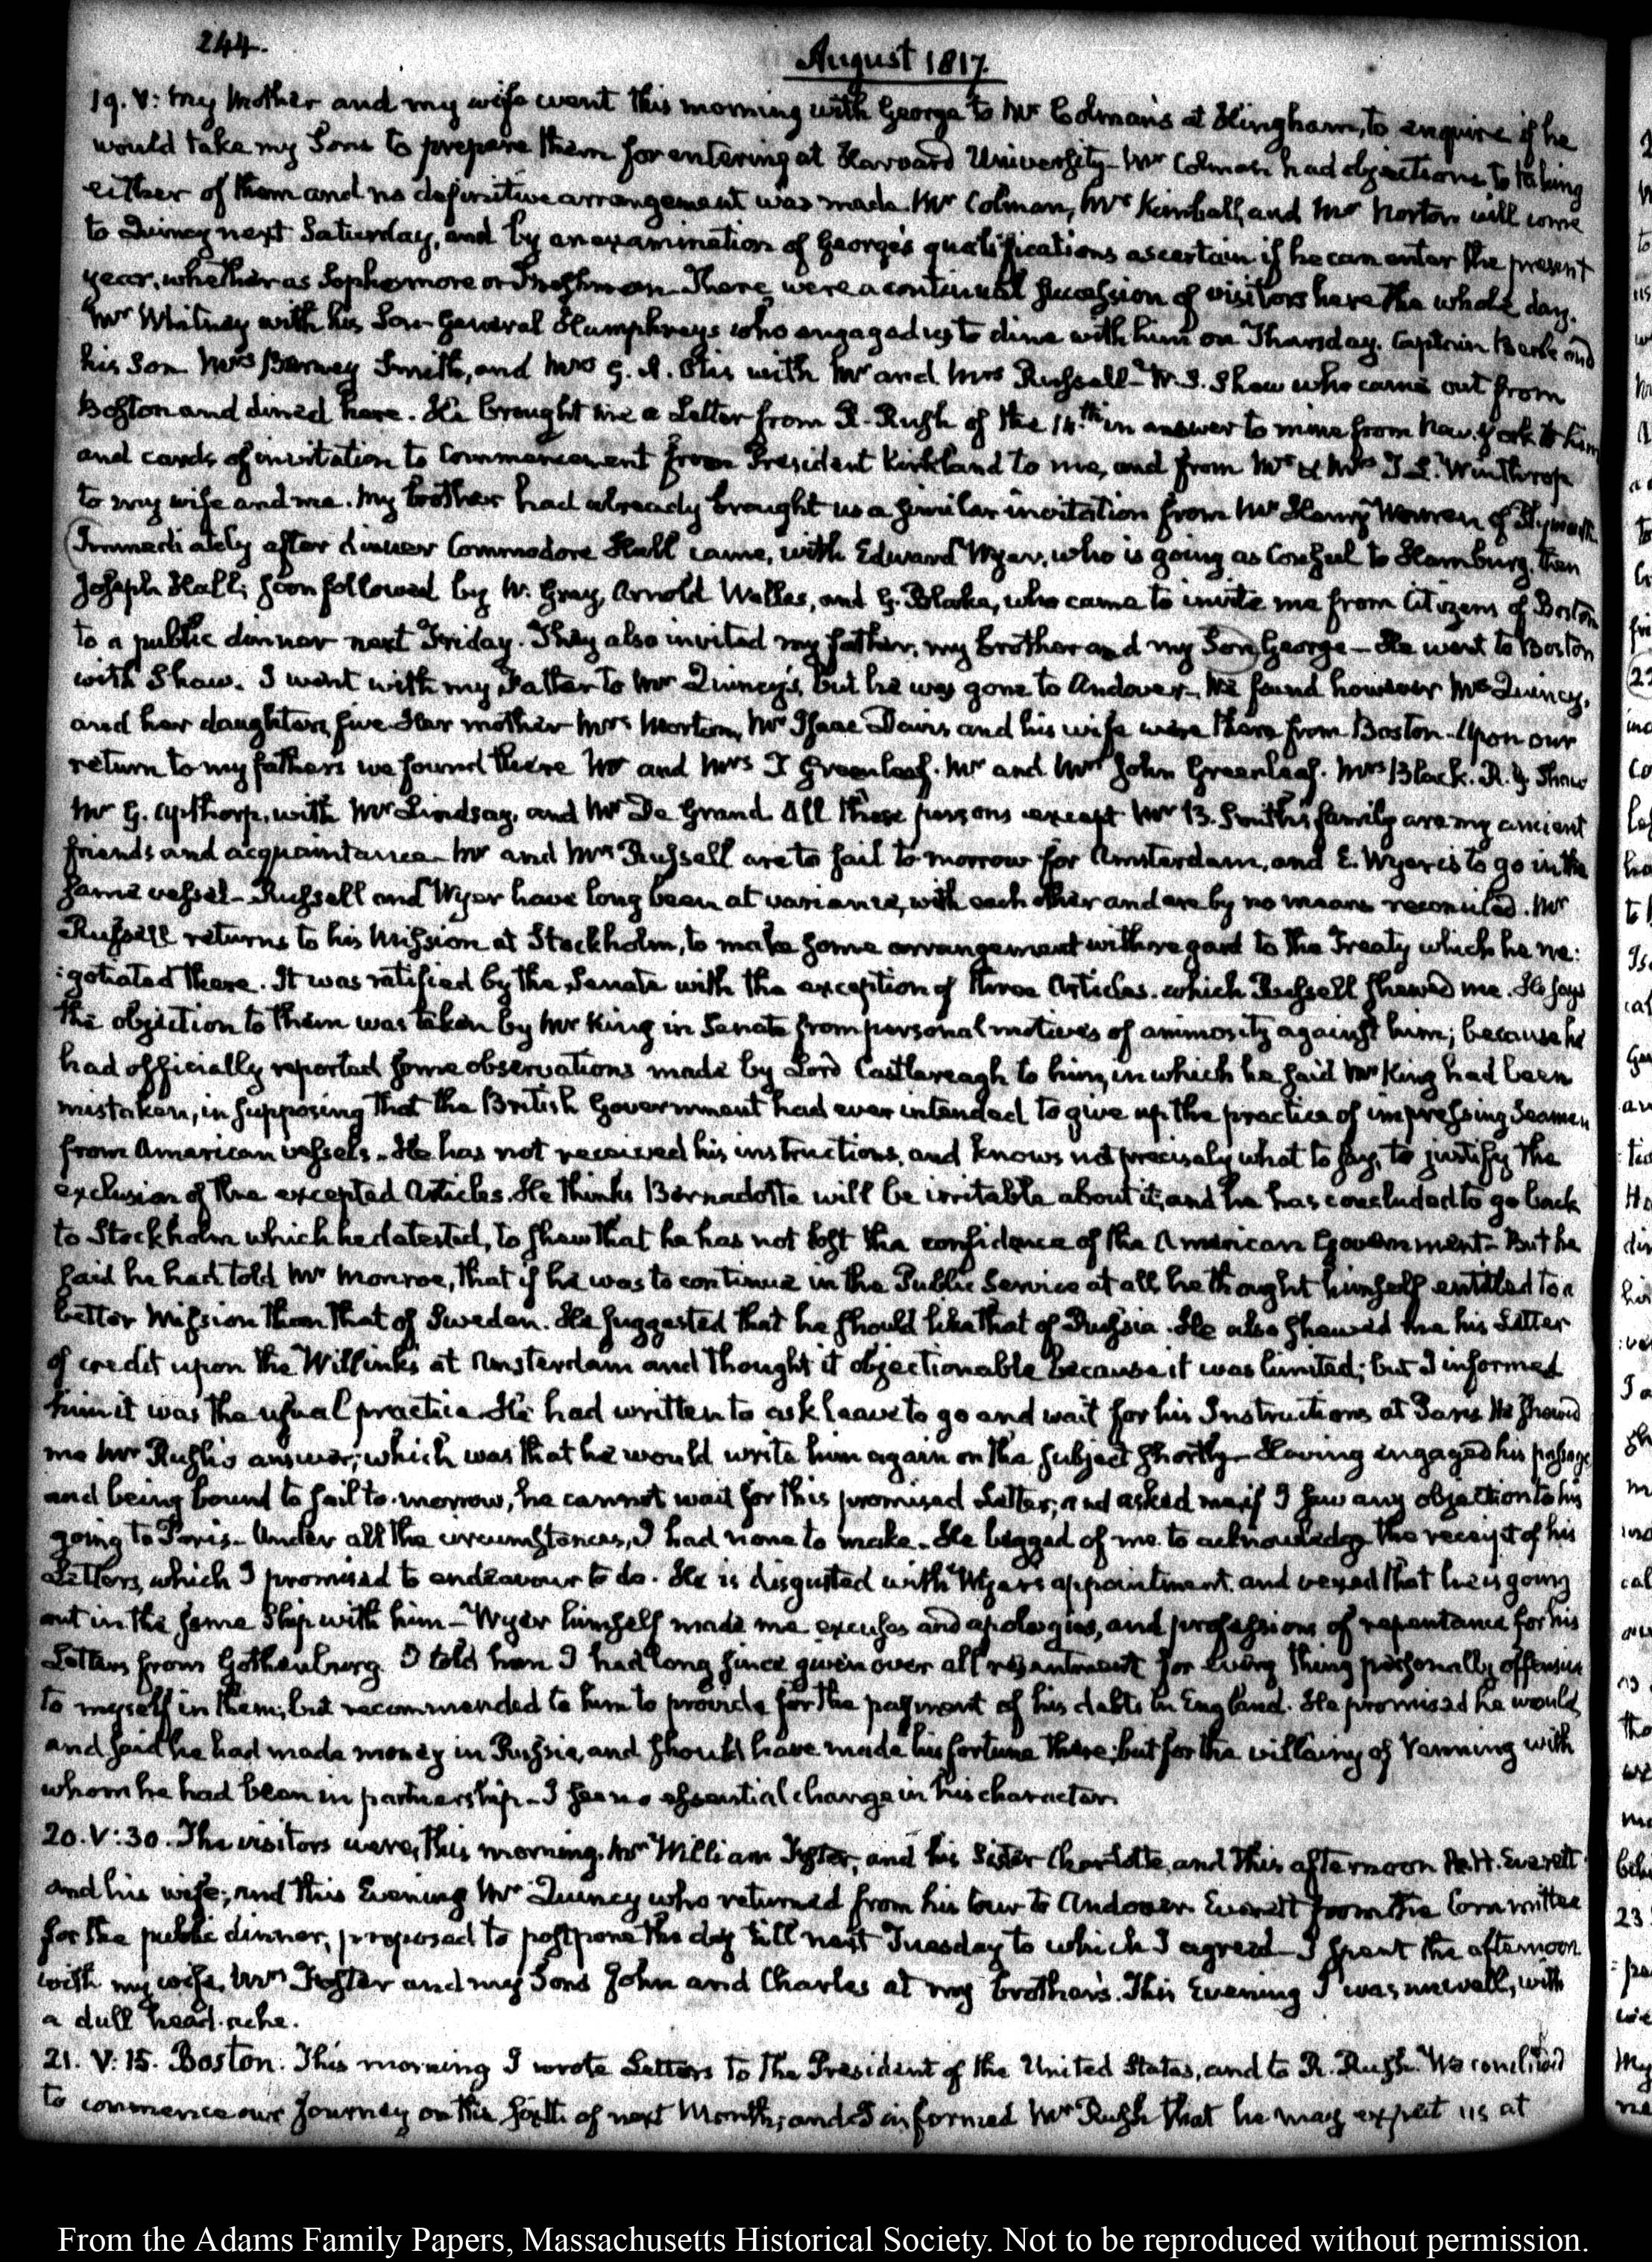 244.
August 1817.
19. V: My Mother and my wife went this morning with George to Mr Colman's at Hingham, to enquire if he
would take my Sons to prepare them for entering at Harvard University — Mr Colman had objections to taking
either of them and no definitive arrangement was made. Mr Colman, Mr Kimball, and Mr Norton will come
to Quincy next Saturday, and by an examination of George's qualifications ascertain if he can enter the present
year, whether as Sophomore or Freshman — There were a continual succession of visitors here the whole day.
Mr Whitney with his Son — General Humphreys who engaged us to dine with him on Thursday. Captain Beale and
his Son Mrs Barney Smith, and Mrs G. A. Otis with Mr and Mrs Russell — W. S. Shaw who came out from
Boston and dined here. He brought me a Letter from R. Rush of the 14.th in answer to mine from New-York to him
and cards of invitation to Commencement from President Kirkland to me, and from Mr & Mrs T. L. Winthrop
to my wife and me. My brother had already brought us a similar invitation from Mr Henry Warren of Plymouth.
Immediately after dinner Commodore Hull came, with Edward Wyer, who is going as Consul to Hamburg, then
Joseph Hall; soon followed by W. Gray, Arnold Welles, and G. Blake, who came to invite me from Citizens of Boston
to a public dinner next Friday. They also invited my father, my brother and my Son George — He went to Boston
with Shaw. I went with my Father to Mr Quincy's, but he was gone to Andover — We found however Mrs Quincy,
and her daughters, five. Her mother Mrs Morton, Mr Isaac Davis and his wife were there from Boston. Upon our
return to my fathers we found there Mr and Mrs T Greenleaf. Mr and Mrs John Greenleaf. Mrs Black. R. G Shaw
Mr G. Apthorp, with Mr Lindsay, and Mr De Grand. All these persons except Mr B. Smith's family are my ancient
friends and acquaintance — Mr and Mrs Russell are to sail to-morrow for Amsterdam, and E. Wyer is to go in the
same vessel — Russell and Wyer have long been at variance, with each other and are by no means reconciled. Mr
Russell returns to his Mission at Stockholm, to make some arrangement with regard to the Treaty which he ne:
:gotiated there. It was ratified by the Senate with the exception of three Articles. which Russell shewed me. He says
the objection to them was taken by Mr King in Senate from personal motives of animosity against him; because he
had officially reported some observations made by Lord Castlereagh to him, in which he said Mr King had been
mistaken, in supposing that the British Government had ever intended to give up the practice of impressing Seamen
from American vessels — He has not received his instructions, and knows not precisely what to say, to justify the
exclusion of the excepted Articles. He thinks Bernadotte will be irritable about it; and he has concluded to go back
to Stockholm which he detested, to shew that he has not lost the confidence of the American Government — But he
said he had told Mr Monroe, that if he was to continue in the Public Service at all he thought himself entitled to a
better Mission than that of Sweden. He suggested that he should like that of Russia. He also shewed me his Letter
of credit upon the Willinks at Amsterdam and thought it objectionable because it was limited; but I informed
him it was the usual practice. He had written to ask leave to go and wait for his Instructions at Paris. He shewed
me Mr Rush's answer; which was that he would write him again on the subject shortly — Having engaged his passage
and being bound to sail to-morrow, he cannot wait for this promised Letter; and asked me if I saw any objection to his
going to Paris — Under all the circumstances, I had none to make. He begged of me to acknowledge the receipt of his
Letters, which I promised to endeavour to do. He is disgusted with Wyer's appointment, and vexed that he is going
out in the same Ship with him — Wyer himself made me excuses and apologies, and professions of repentance for his
Letters from Gothenburg. I told him I had long since given over all resentment for every thing personally offensive
to myself in them; but recommended to him to provide for the payment of his debts in England. He promised he would
and said he had made money in Russia, and should have made his fortune there; but for the villainy of Venning with
whom he had been in partnership — I see no essential change in his character.
20. V:30. The visitors were, this morning, Mr William Foster, and his Sister Charlotte, and this afternoon A. H. Everett
and his wife; and this Evening Mr Quincy who returned from his tour to Andover. Everett from the Committee
for the public dinner, proposed to postpone the day till next Tuesday to which I agreed — I spent the afternoon
with my wife, Mrs Foster and my Sons John and Charles at my brother's. This Evening I was unwell, with
a dull head-ache.
21. V:15. Boston. This morning I wrote Letters to the President of the United States, and to R. Rush. We concluded
to commence our Journey on the sixth of next Month; and I informed Mr Rush that he may expect us at
From the Adams Family Papers, Massachusetts Historical Society. Not to be reproduced without permission.